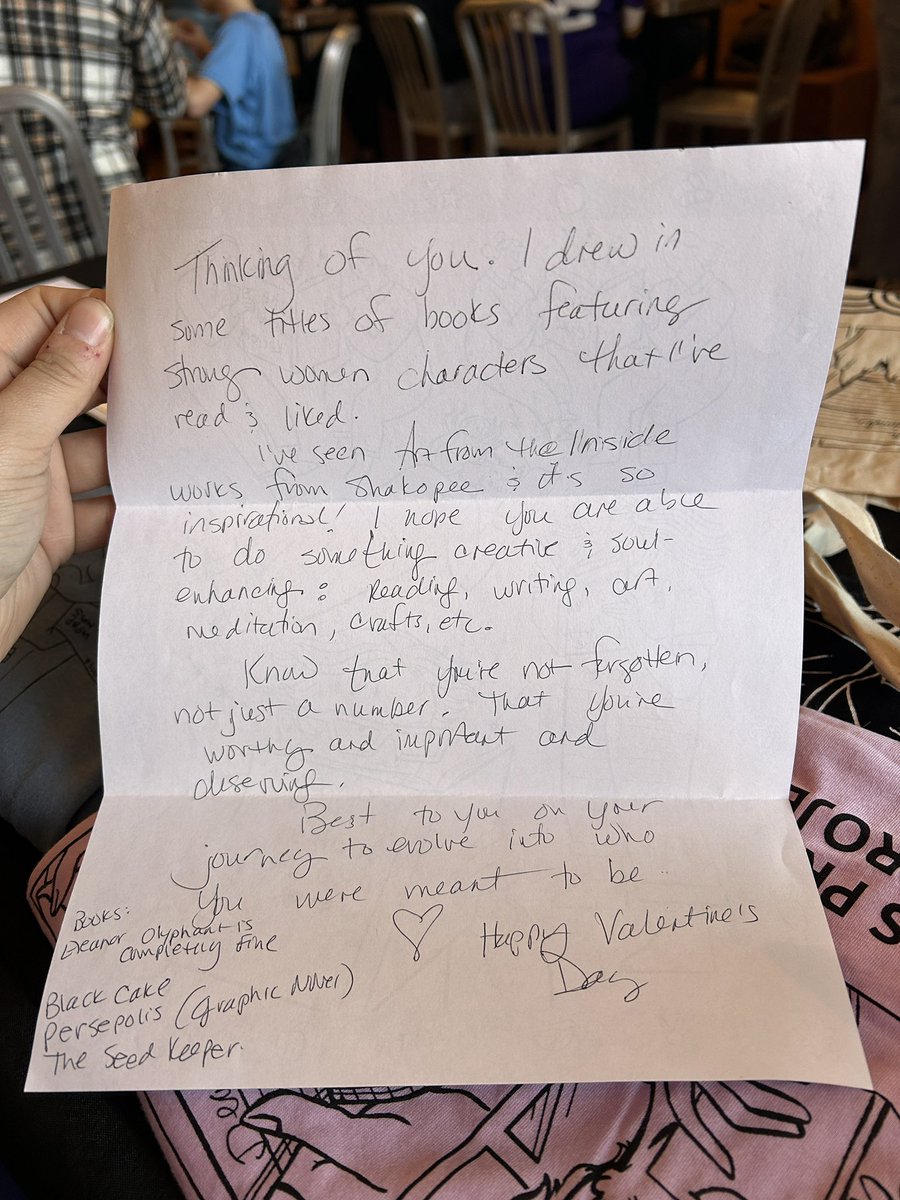 Thinking of you. I drew in
some titles of books featuring
strong women characters that I've
read & liked.
I've seen Art from the Iniside
works from Shakopee & it's so
inspirational! I hope you are able
to do something creative & soul-
enhancing: Reading, writing, art,
meditation, crafts, etc.
Know that you're not forgotten,
not just a number. That you're
worthy and important and
deserving.
Best to you on your
journey to evolve into who
you were meant to be.
Happy Valentine's
Day
Books:
Eleanor Olyphant is
completely fine
Black Cake
Persepolis (Graphic Novel)
The Seed Keeper.